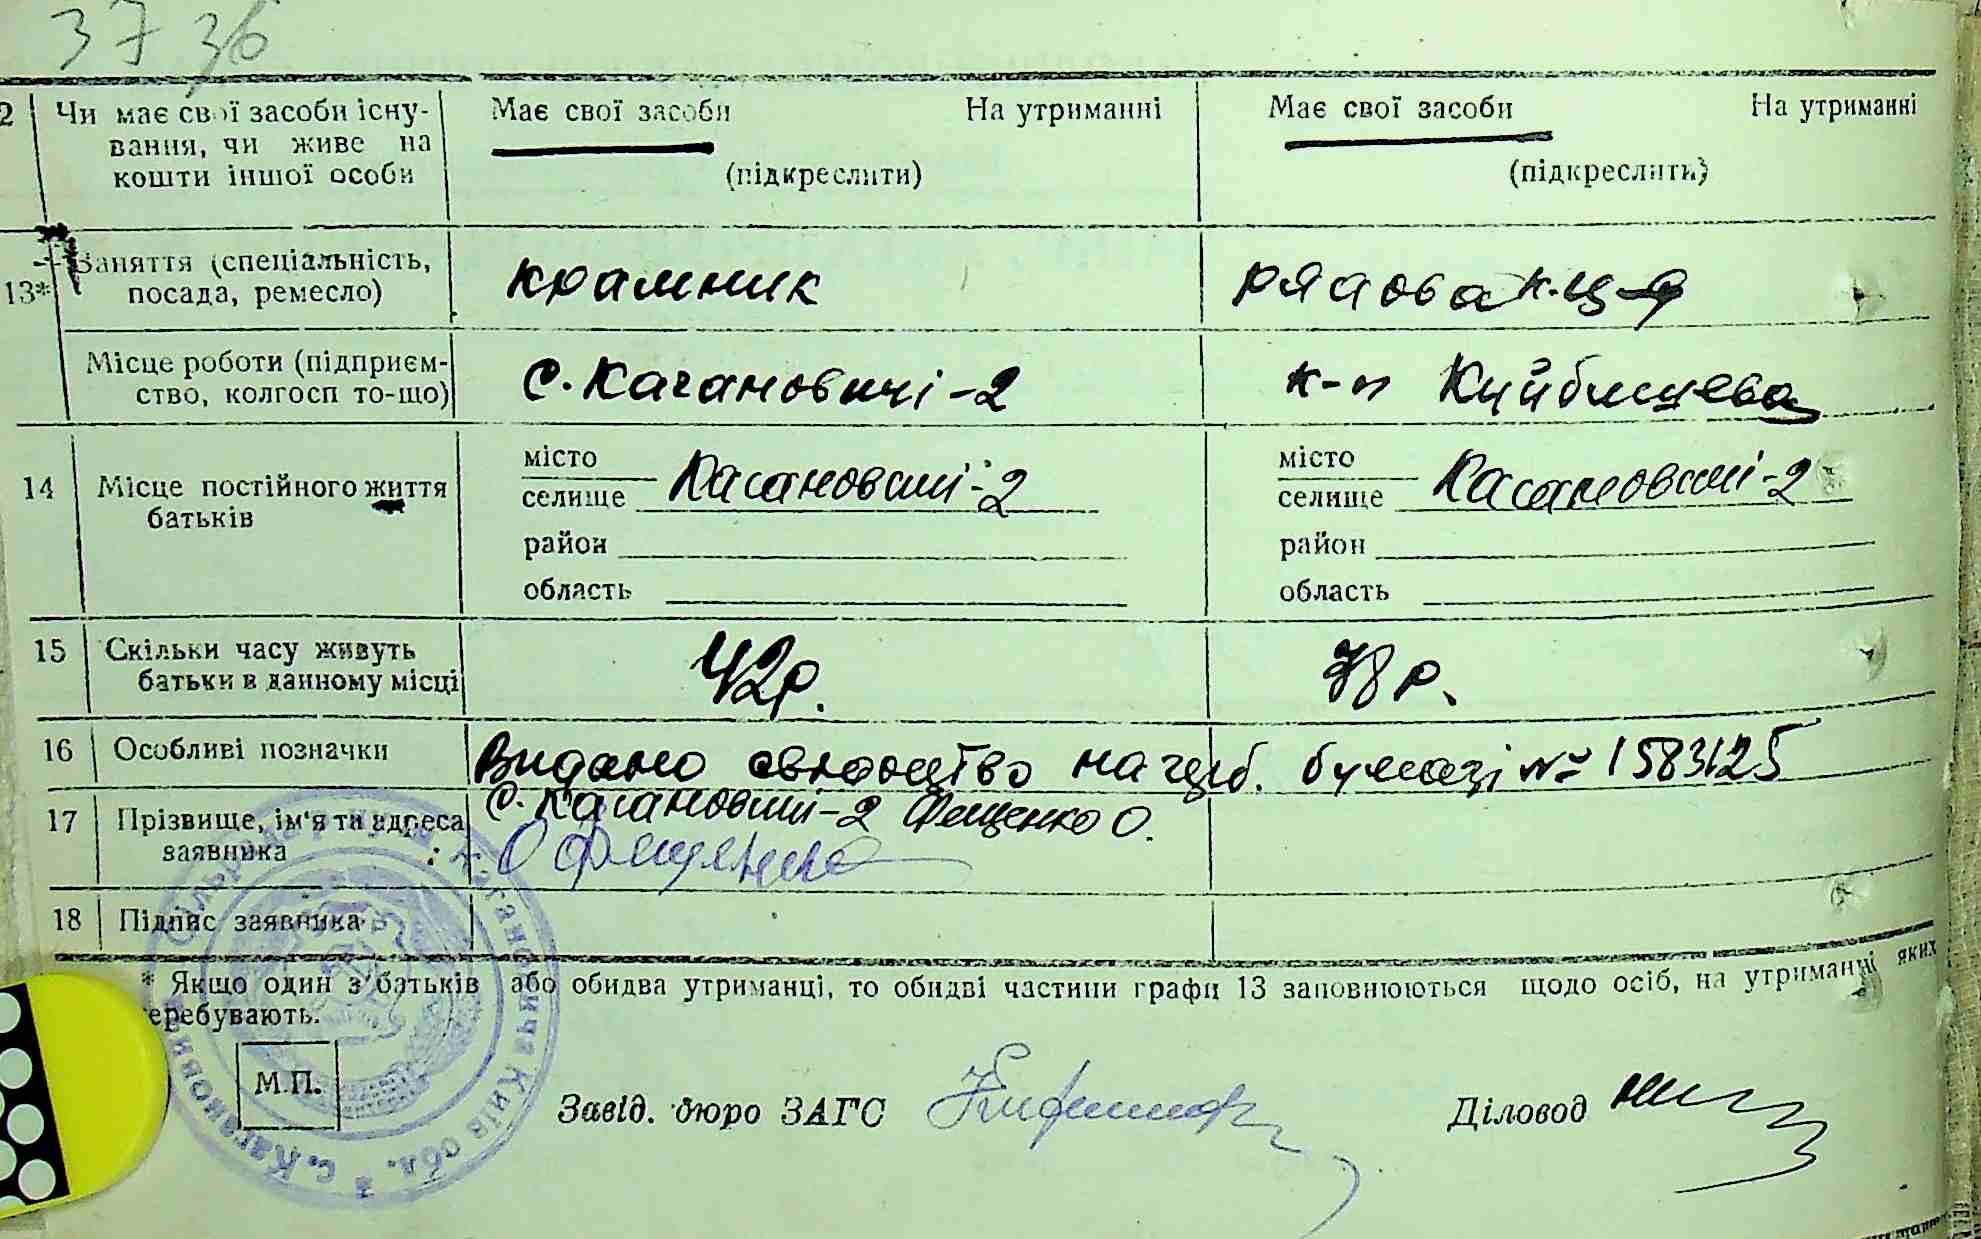 37 36
2 Чи має свої засоби існу- Має свої засоби На утриманні Має свої засоби На утриманні
вання, чи живе на
кошти іншої особи (підкреслити) (підкреслити)
13* Заняття (спеціальність, крамник рядова к-ця
посада, ремесло)
Місце роботи (підприєм- с. Кагановичі-2 к-п Куйбишева
ство, колгосп то-що)
місто місто
14 Місце постійного життя селище Кагановичі-2 селище Кагановичі-2
батьків
район район
область область
15 Скільки часу живуть 42 р. 78 р.
батьки в данному місці
16 Особливі позначки Видано свідоцтво на герб. бумазі № 1583125
17 Прізвище, ім'я та адреса с. Кагановичі-2 Фещенко О.
заявника О Фещенко
18 Підпис заявника
* Якщо один з батьків або обидва утриманці, то обидві частини графи 13 заповнюються щодо осіб, на утриманні яких
еребувають.
М.П.
Завід. бюро ЗАГС Діловод